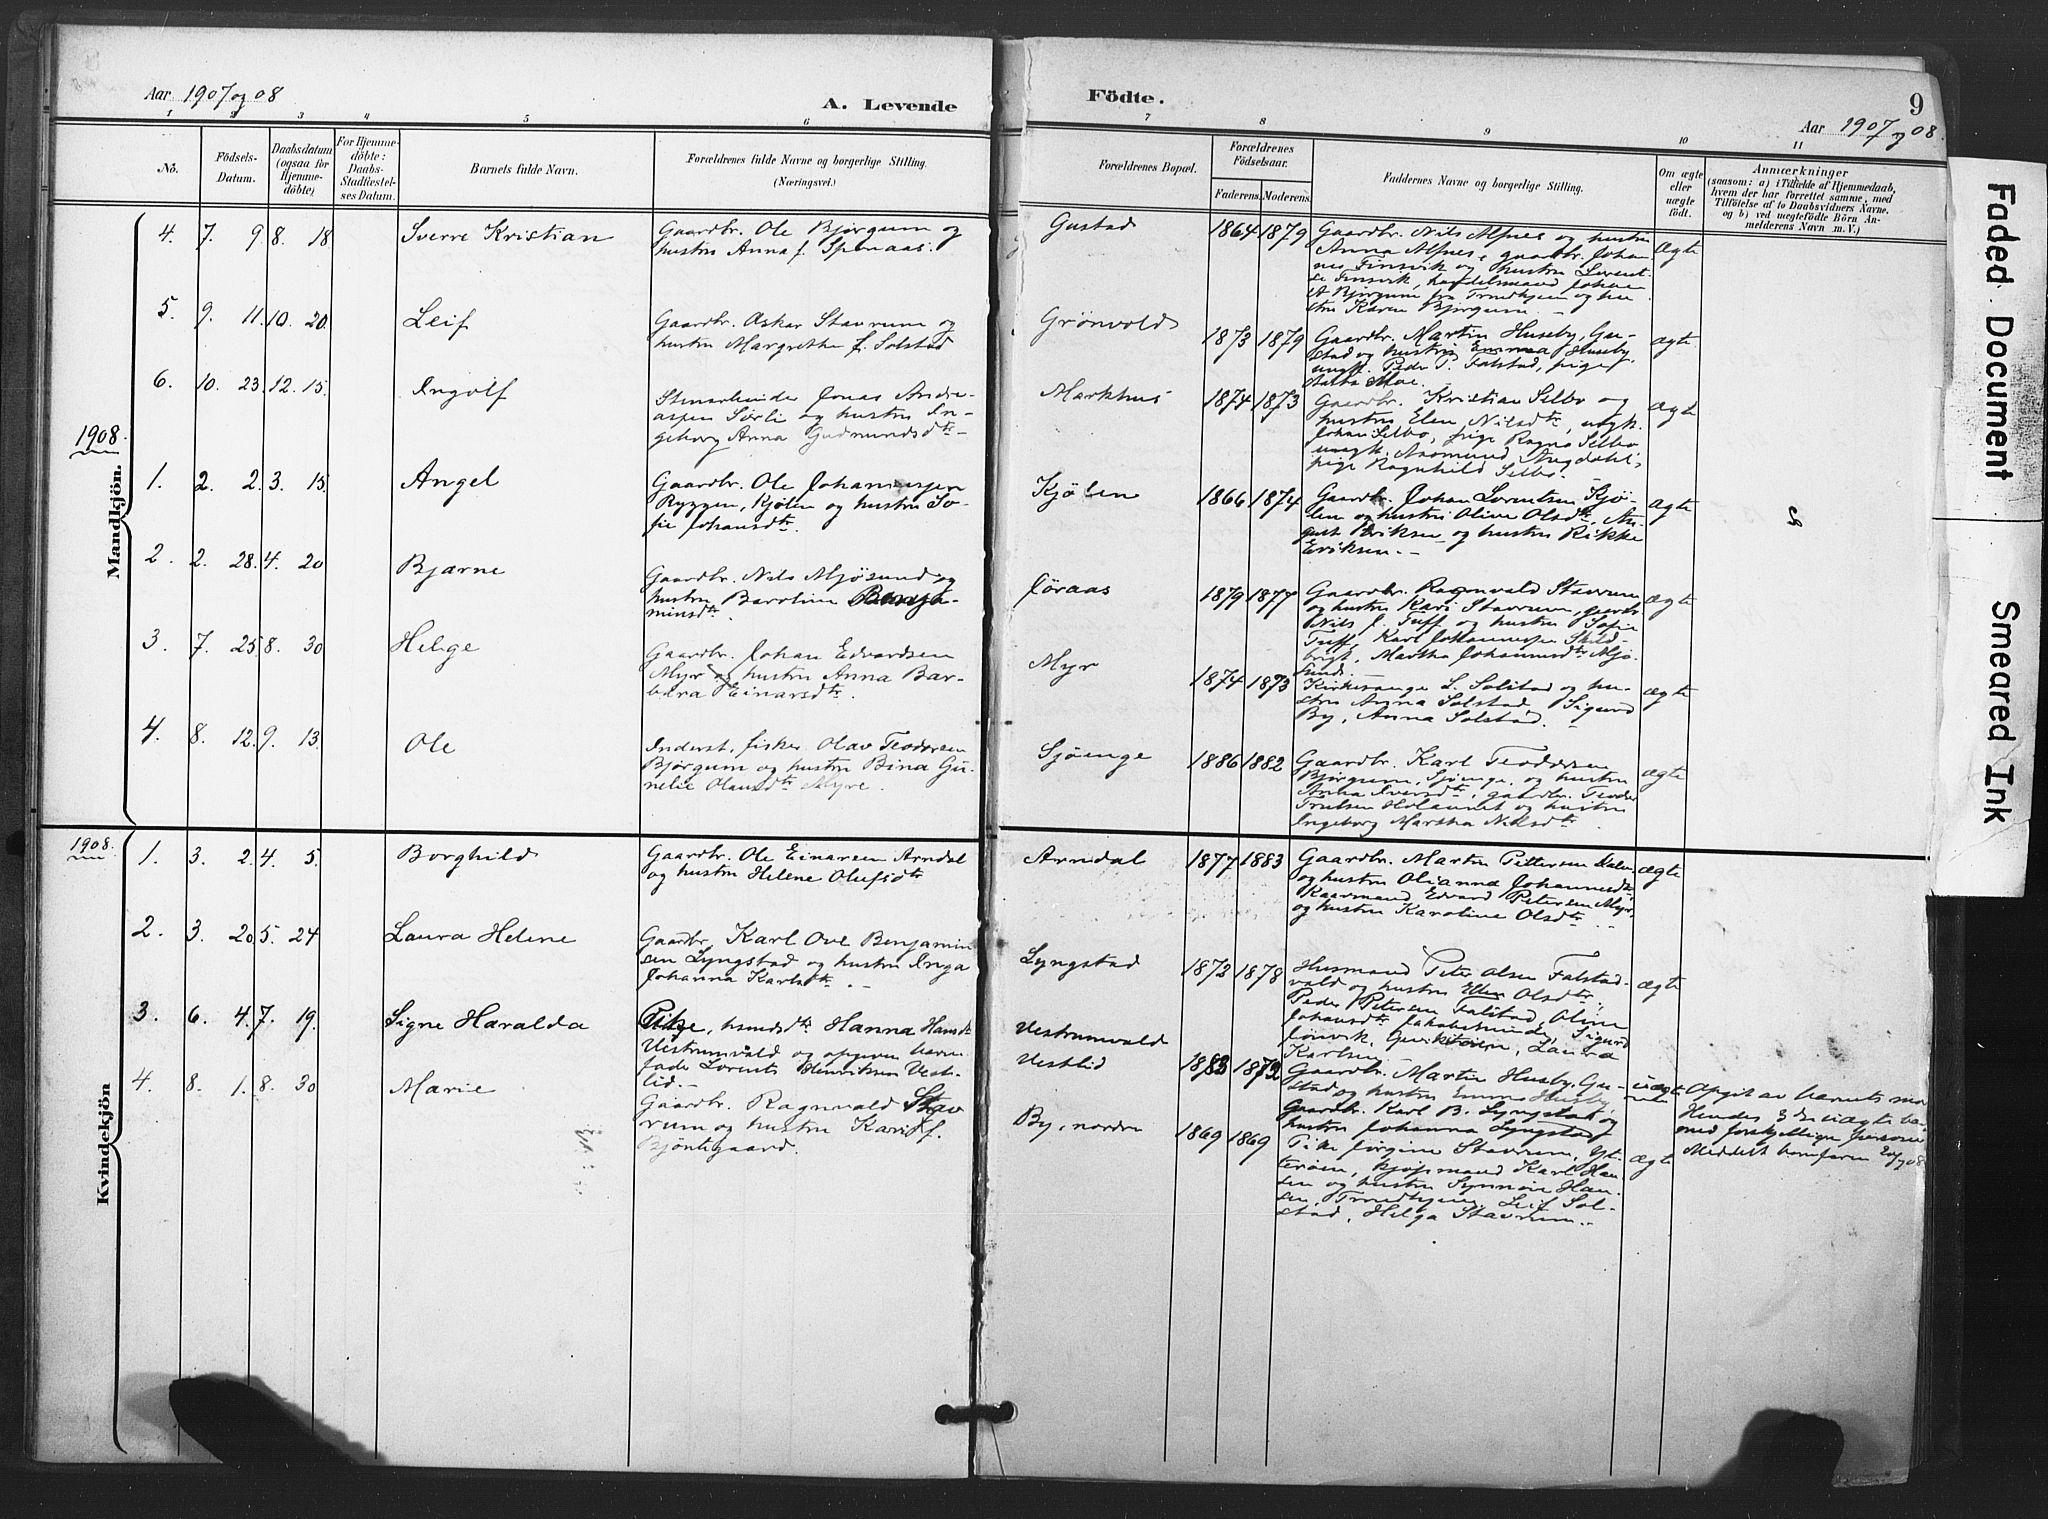 Aar 1907 og 08
A. Levende
Födte.
9
Aar 1907 og 08.
1 2 3 4 5 6 7 8 9 10 11
No.
Födsels-
Datum.
Daabsdatum
(ogsaa for
Hjemme-
döbte)
For Hjemme-
döbte:
Daabs-
Stadfæstel-
ses Datum.
Barnets fulde Navn.
Forældrenes fulde Navne og borgerlige Stilling.
(Næringsvei.)
Forældrenes Bopæl.
Forældrenes
Födselsaar.
Faderens. Moderens.
Faddernes Navne og borgerlige Stilling.
Om ægte
eller
uægte
födt.
Anmærkninger
(saasom: a) i Tilfælde af Hjemmedaab,
hvem der har forrettet samme, med
Tilföielse af to Daabsvidners Navne,
og b) ved uegtefödte Börn An-
melderens Navn m. V.)
Mandkjön.
4. 7. 9. 8. 18. Sverre Kristian
Gaardbr. Ole Bjørgum og
hustru Anna f. Spenaas.
Gustad
1864 1879
Gaardbr. Nils Alfnes og hustru
Anna Alfnes, gaardbr. Johan-
nes Finsvik og hustru Lorent-
se Finsvik, handelsmand Johan
A. Bjørgum fra Trondhjem og hu-
stru Karen Bjørgum.
ægte
5. 9. 11. 10. 20. Leif
Gaardbr. Oskar Stavrum og
hustru Margrethe f. Solstad
Grönvold
1873 1879
Gaardbr. Martin Huseby, Gu-
stad og hustru Emma Huseby,
ungk. Peder T. Falstad, pige
Moe.
ægte
6. 10. 23. 12. 15. Ingolf
Stenarbeider Jonas Andre-
assen Sørli og hustru In-
geborg Anna Gudmundsdtr
Markhus
1874 1873
Gaardbr. Kristian Selbo og
hustru Elen Nilsdtr, ungk.
Johan Selbo, pige Ragna Selbo
ungk. Aasmund Aagdahl,
pige Ragnhild Selbo.
ægte
1908.
1. 2. 2. 3. 15. Angel
Gaardbr. Ole Johannessen
Ryggen, Kjølen og hustru So-
fie Johansdtr.
Kjølen
1866 1874
Gaardbr. Johan Lorentsen Kjö-
len og hustru Oline Olsdtr, Au-
gust Eriksen og hustru Rikke
Eriksen.
ægte
2. 2. 28. 4. 20 Bjarne
Gaardbr. Nils Mjøsund og
hustru Baroline Benja-
minsdtr.
Jøraas
1879 1877
Gaardbr. Ragnvald Stavrum
og hustru Kari Stavrum, gaardbr.
Nils J. Tuff og hustru Sofie
Tuff, Karl Johannessen Skild-
, Martha Johannesdtr Mjö-
sund.
ægte
3. 7. 25. 8. 30 Helge
Gaardbr. Johan Edvardsen
Myr og hustru Anna Bar-
bara Einarsdtr.
Myr
1874 1873
Kirkesanger L. Solstad og hu-
stru Anna Solstad, Sigurd
By, Anna Solstad.
ægte
4. 8. 12. 9. 13. Ole
Inderst, fisker Olav Teodorsen
Bjørgum og hustru Bina Gu-
nelie Olausdtr Myre.
Sjøenge
1886 1882
Gaardbr. Karl Teodorsen
Bjørgum, Sjöenge, og hustru
Anna Iversdtr, gaardbr. Teodor
Trulsen Holaunet og hustru
Ingeborg Martha Nilsdtr.
ægte
Kvindekjön
1908.
1. 3. 2. 4. 5. Borghild
Gaardbr. Ole Einarsen Arndal
og hustru Helene Olufsdtr
Arndal
1877 1883
Gaardbr. Martin Pettersen Dalen
og hustru Olianna Johannesdtr,
Kaarmand Edvard Petersen Myr,
og hustru Karoline Olsdtr.
ægte
2. 3. 20. 5. 24 Laura Helene
Gaardbr. Karl Ove Benjamin
sen Lyngstad og hustru Inga
Johanna Karlsdtr.
Lyngstad
1872 1878
Husmand Peter Olsen Falstad-
vald og hustru Ellen Olsdtr.
Peder Petersen Falstad, Oline
Johansdtr, Sigurd
Laura
Karlsen
ægte
3. 6. 4. 7. 19. Signe Haralda
Pike, husmdsdtr Hanna Hansdtr
Vestrumvald og opgiven barne-
fader Lorents Henriksen Vest-
lid.
Vestrumvald
Vestlid
1883 1872
Gaardbr. Martin Husby, Gu-
stad og hustru Emma Husby,
Gaardbr. Karl B. Lyngstad og
hustru Johanna Lyngstad
uægte
Opgit av barnets mor
Hendes 3die uægte barn
med forskjellige personer
Meddelt
4. 8. 1. 8. 30 Marie
Gaardbr. Ragnvald Stav
rum og hustru Kari f.
Bjöntegaard.
By, nordre
1869 1869
Pike Jørgine Stavrum, Yt-
terøen, kjøpmand Karl Han-
sen og hustru Synnøve Han-
sen, Trondhjem, Leif Sol-
stad, Helga Stavrum.
ægte
Faded Document
Smeared Ink